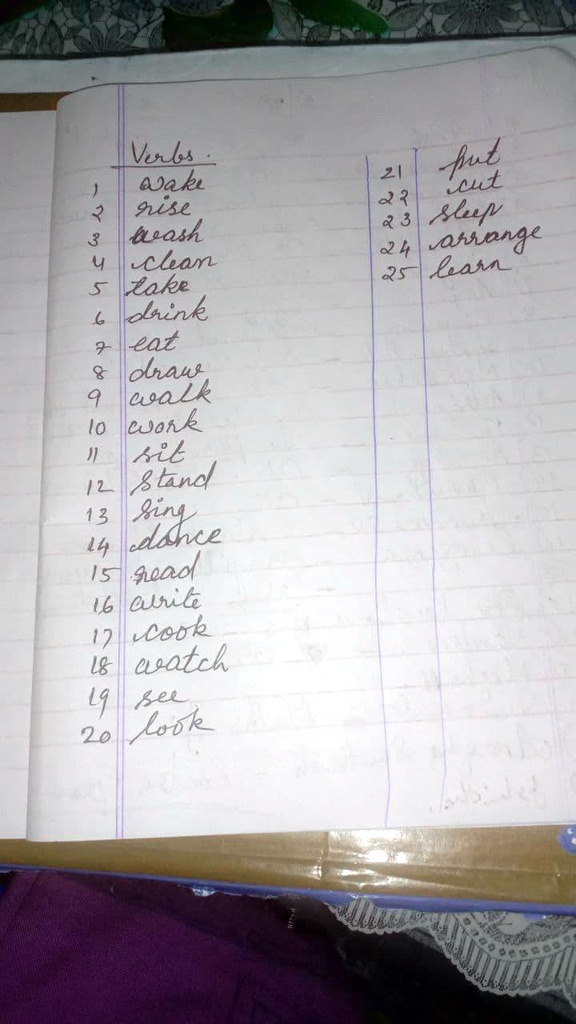 Verbs.
1 wake
2 rise
3 wash
4 clean
5 take
6 drink
7 eat
8 draw
9 walk
10 work
11 sit
12 stand
13 sing
14 dance
15 read
16 write
17 cook
18 watch
19 see
20 look
21 put
22 cut
23 sleep
24 arrange
25 learn